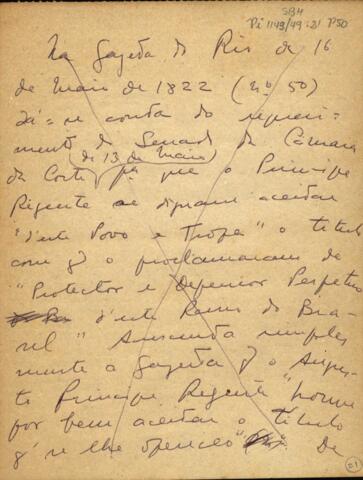 SBH
Pi 1143/49-21 P50
Na Gazeta do Rio de 16
de Maio de 1822 (nº 50)
dá-se conta do requeri-
mento do Senado da Câmara
(de 13 de Maio)
da Corte pª que o Principe
Regente se dignasse aceitar
"d'este Povo e Tropa" o titulo
com q o proclamaram de
"Protector e Defensor Perpetuo
d'este Reino do Bra-
sil" Anuncia simples
mente a Gazeta q o Augus-
to Principe Regente "houve
por bem aceitar o titulo
q' se lhe offereceo" De
21